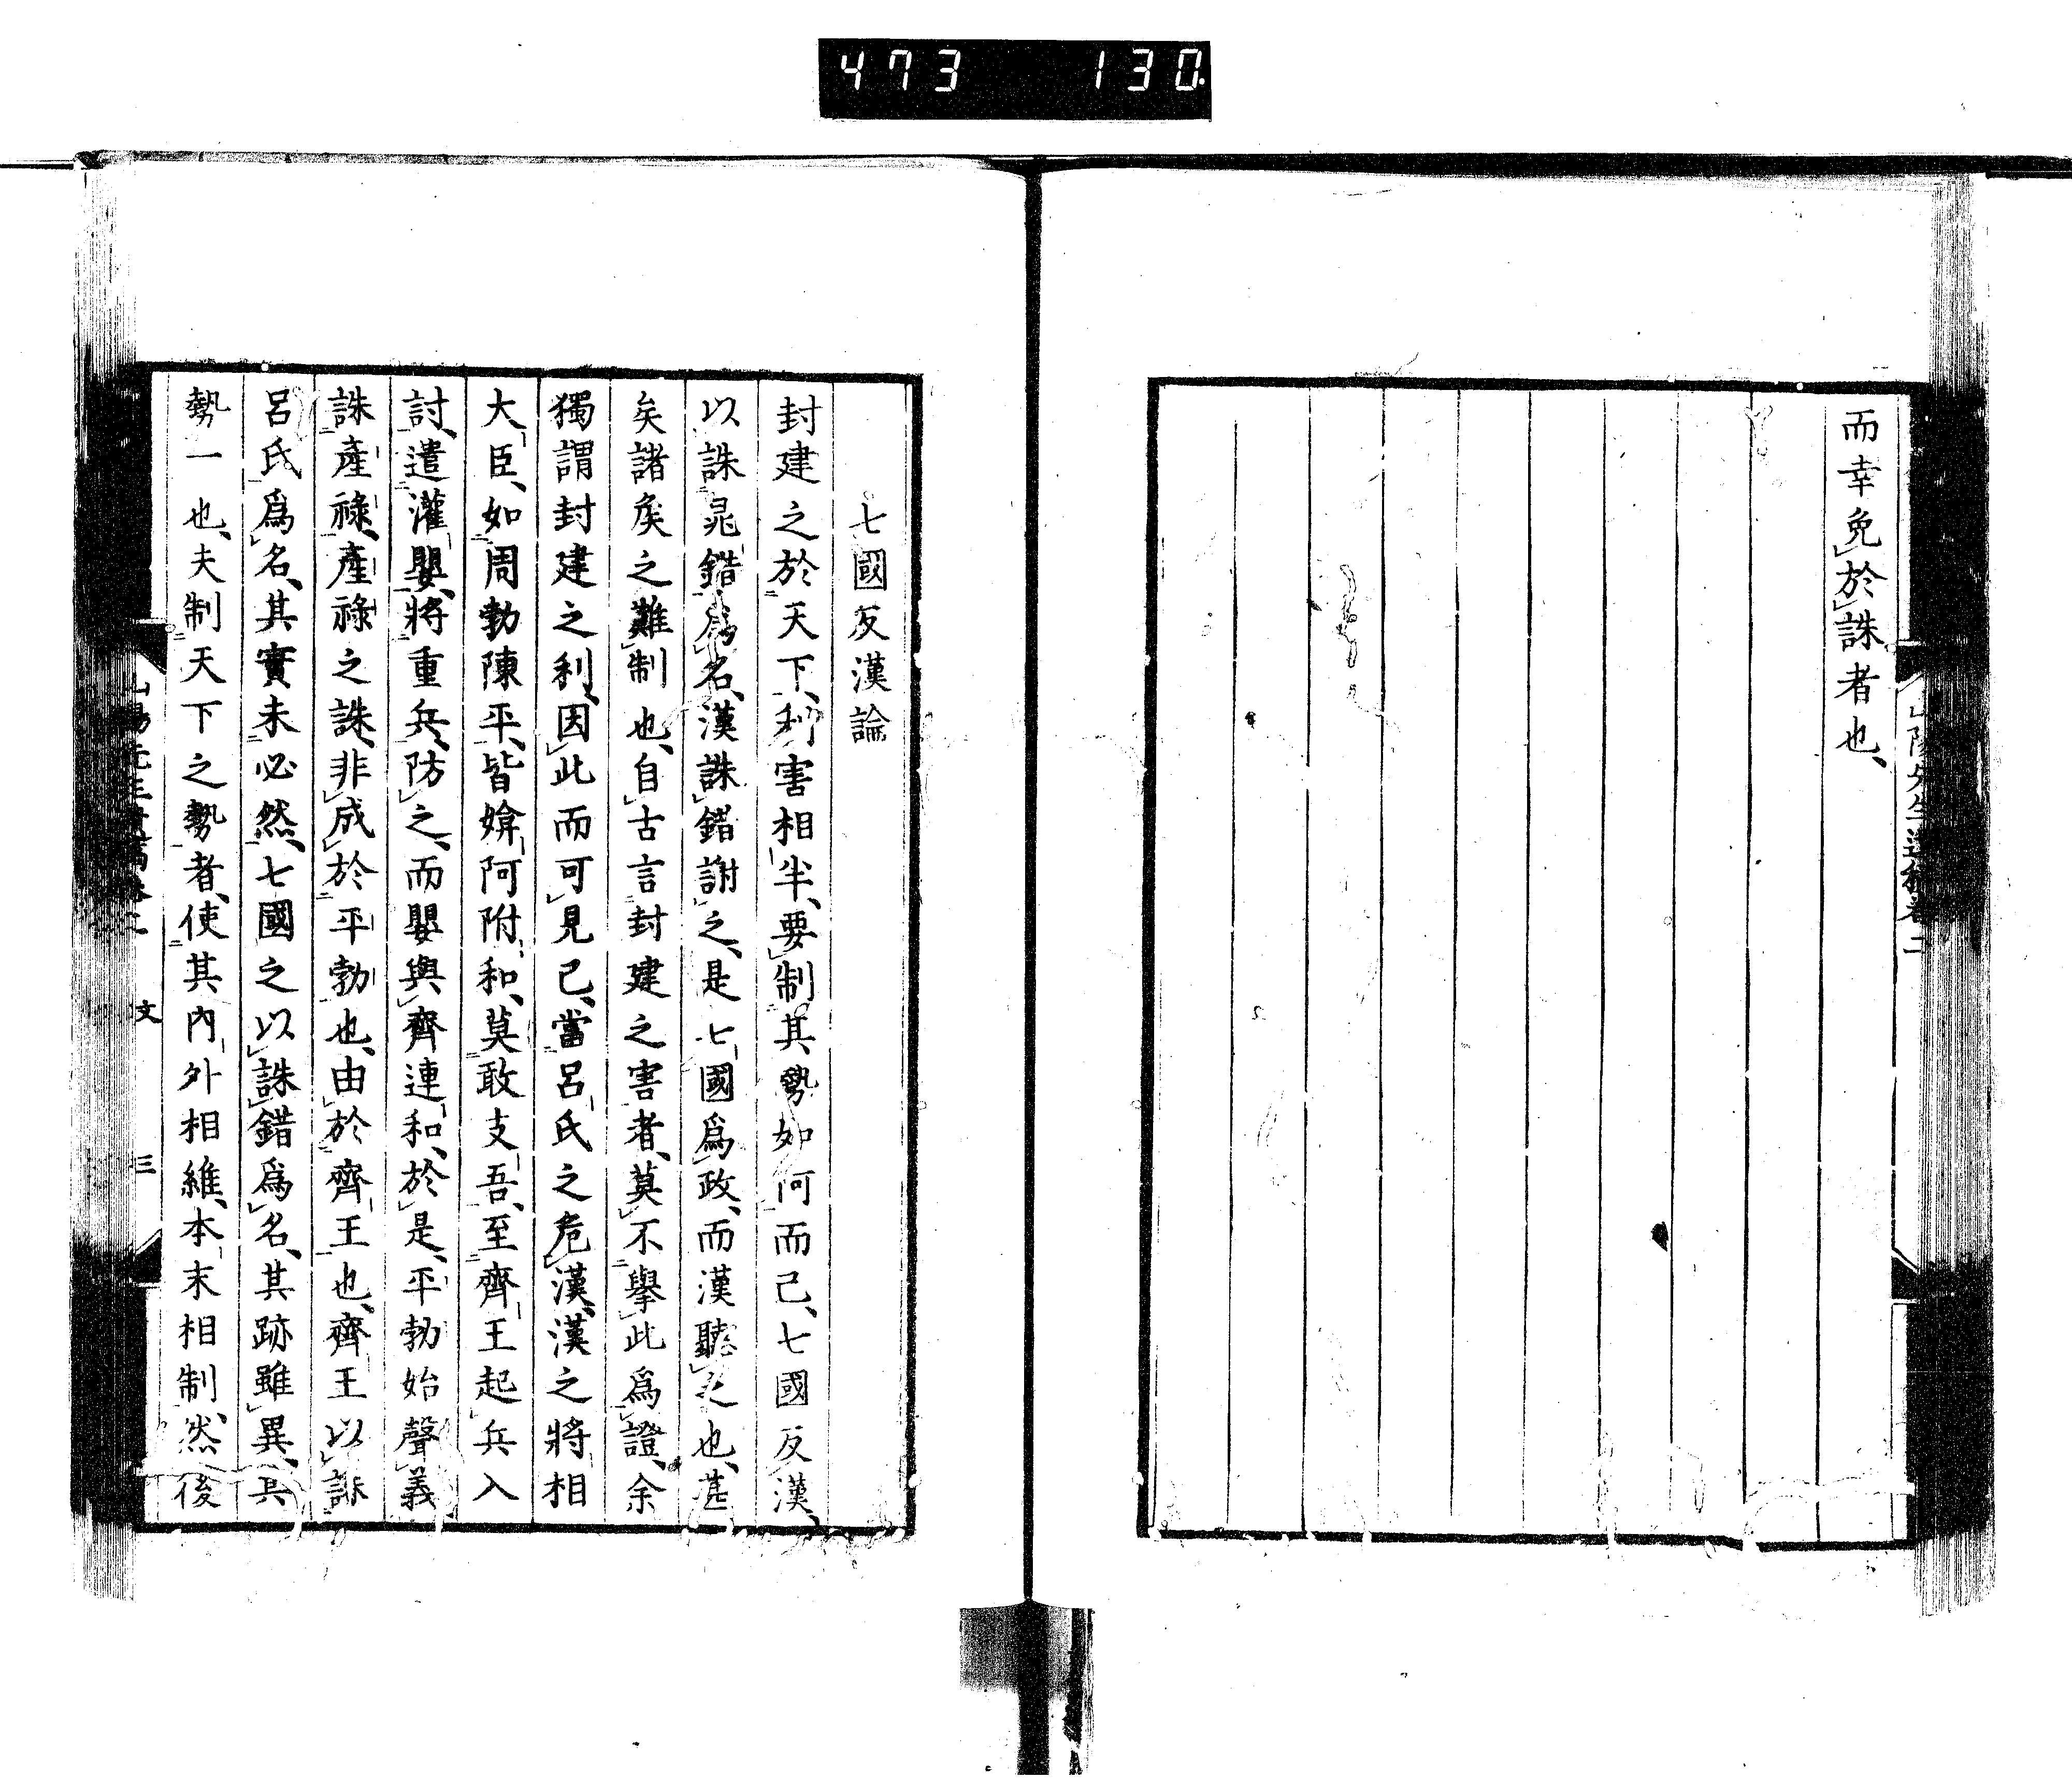 473 130
而幸免於誅者也、
七國反漢論
封建之於天下、利害相半、要制其勢如何而已、七國反漢、
以誅晁錯爲名、漢誅錯謝之、是七國爲政、而漢聽之也、甚
矣諸矦之難制也、自古言封建之害者、莫不擧此爲證、余
獨謂封建之利、因此而可見已、當呂氏之危漢、漢之將相
大臣、如周勃陳平、皆媕阿附和、莫敢支吾、至齊王起兵入
討、遣灌嬰、將重兵、防之、而嬰與齊連和、於是、平勃始聲義
誅產祿、產祿之誅、非成於平勃也、由於齊王也、齊王以誅
呂氏爲名、其實未必然、七國之以誅錯爲名、其跡雖異、其
勢一也、夫制天下之勢者、使其內外相維、本末相制、然後
文
三